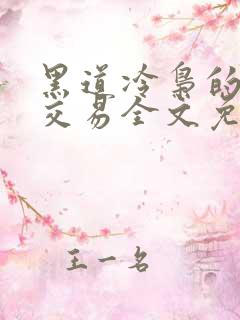 黑道冷枭的
交易全文免
王一名